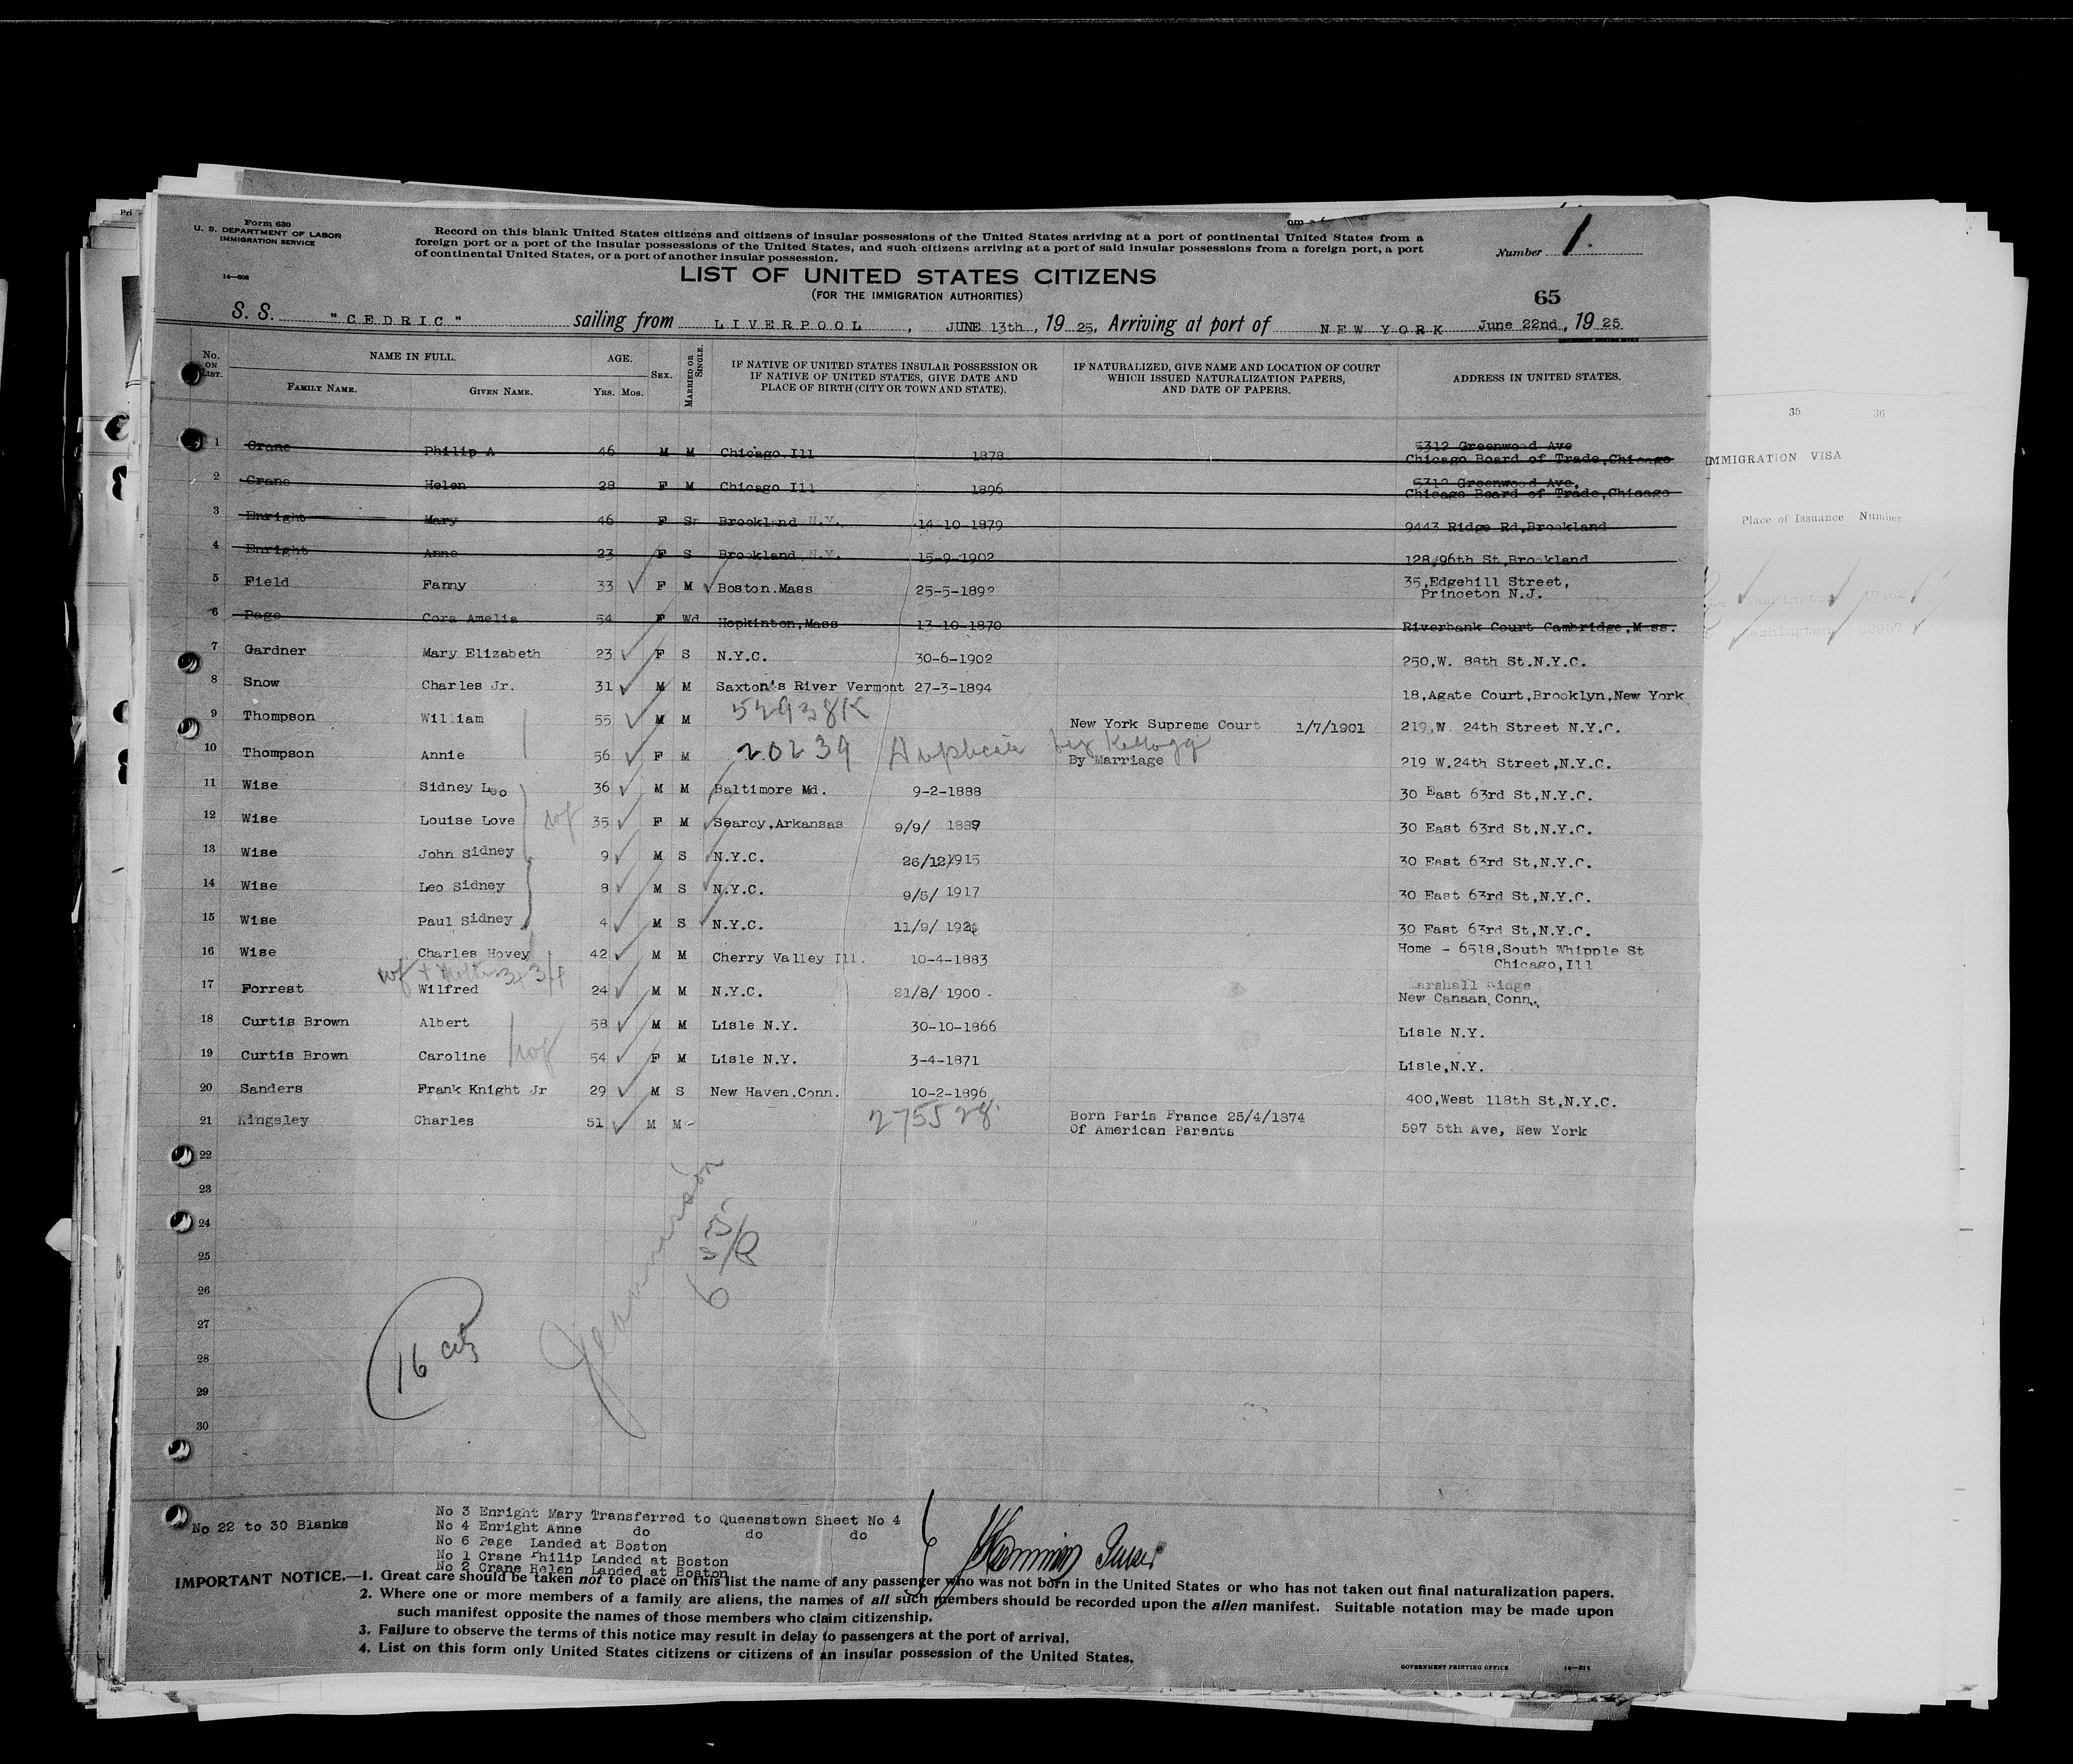 Form 630
U. S. DEPARTMENT OF LABOR
IMMIGRATION SERVICE
14—608
Record on this blank United States citizens and citizens of insular possessions of the United States arriving at a port of continental United States from a
foreign port or a port of the insular possessions of the United States, and such citizens arriving at a port of said insular possessions from a foreign port, a port
of continental United States, or a port of another insular possession.
Number 1.
LIST OF UNITED STATES CITIZENS
(FOR THE IMMIGRATION AUTHORITIES)
65
S. S. "CEDRIC" sailing from LIVERPOOL, JUNE 13th, 1925, Arriving at port of NEW YORK June 22nd, 1925
No. ON LIST.
NAME IN FULL.
FAMILY NAME. GIVEN NAME.
AGE.
Yrs. Mos.
SEX.
MARRIED OR SINGLE.
IF NATIVE OF UNITED STATES INSULAR POSSESSION OR
IF NATIVE OF UNITED STATES, GIVE DATE AND
PLACE OF BIRTH (CITY OR TOWN AND STATE).
IF NATURALIZED, GIVE NAME AND LOCATION OF COURT
WHICH ISSUED NATURALIZATION PAPERS,
AND DATE OF PAPERS.
ADDRESS IN UNITED STATES.
35 36
IMMIGRATION VISA
Place of Issuance Number
1 Crane Philip A 46 M M Chicago,Ill 1878 5312 Greenwood Ave
Chicago Board of Trade,Chicago
2 Crane Helen 28 F M Chicago Ill 1896 5312 Greenwood Ave.
Chicago Board of Trade,Chicago
3 Enright Mary 46 F S Brookland N.Y. 14-10-1879 9443 Ridge Rd,Brookland
4 Enright Anne 23 F S Brookland N.Y. 15-9-1902 128/96th St,Brookland
5 Field Fanny 33 F M Boston.Mass 25-5-1892 35,Edgehill Street,
Princeton N.J.
6 Page Cora Amelia 54 F Wd Hopkinton,Mass 13-10-1870 Riverbank Court Cambridge,Mass.
7 Gardner Mary Elizabeth 23 F S N.Y.C. 30-6-1902 250,W. 88th St.N.Y.C.
8 Snow Charles Jr. 31 M M Saxton's River Vermont 27-3-1894 18,Agate Court,Brooklyn,New York
52938K
9 Thompson William 55 M M New York Supreme Court 1/7/1901 219,W 24th Street N.Y.C.
20239 Duplicate by Kellogg
10 Thompson Annie 56 F M By Marriage 219 W.24th Street,N.Y.C.
11 Wise Sidney Leo 36 M M Baltimore Md. 9-2-1888 30 East 63rd St,N.Y.C.
12 Wise Louise Love 35 F M Searcy,Arkansas 9/9/ 1889 30 East 63rd St,N.Y.C.
13 Wise John Sidney 9 M S N.Y.C. 26/12/1915 30 East 63rd St,N.Y.C.
14 Wise Leo Sidney 8 M S N.Y.C. 9/5/ 1917 30 East 63rd St,N.Y.C.
15 Wise Paul Sidney 4 M S N.Y.C. 11/9/ 192 30 East 63rd St,N.Y.C.
16 Wise Charles Hovey 42 M M Cherry Valley Ill. 10-4-1883 Home - 6518,South Whipple St
Chicago,Ill
17 Forrest Wilfred 24 M M N.Y.C. 21/8/ 1900 Marshall Ridge
New Canaan Conn.
18 Curtis Brown Albert 58 M M Lisle N.Y. 30-10-1866 Lisle N.Y.
19 Curtis Brown Caroline 54 F M Lisle N.Y. 3-4-1871 Lisle,N.Y.
20 Sanders Frank Knight Jr 29 M S New Haven.Conn. 10-2-1896 400,West 118th St,N.Y.C.
21 Kingsley Charles 51 M M 275528 Born Paris France 25/4/1874
Of American Parents
597 5th Ave, New York
22
23
24
25
26
27
28
29
30
16 cits
No 22 to 30 Blanks
No 3 Enright Mary Transferred to Queenstown Sheet No 4
No 4 Enright Anne do do do
No 6 Page Landed at Boston
No 1 Crane Philip Landed at Boston
No 2 Crane Helen Landed at Boston
IMPORTANT NOTICE.—1. Great care should be taken not to place on this list the name of any passenger who was not born in the United States or who has not taken out final naturalization papers.
2. Where one or more members of a family are aliens, the names of all such members should be recorded upon the alien manifest. Suitable notation may be made upon
such manifest opposite the names of those members who claim citizenship.
3. Failure to observe the terms of this notice may result in delay to passengers at the port of arrival.
4. List on this form only United States citizens or citizens of an insular possession of the United States.
GOVERNMENT PRINTING OFFICE